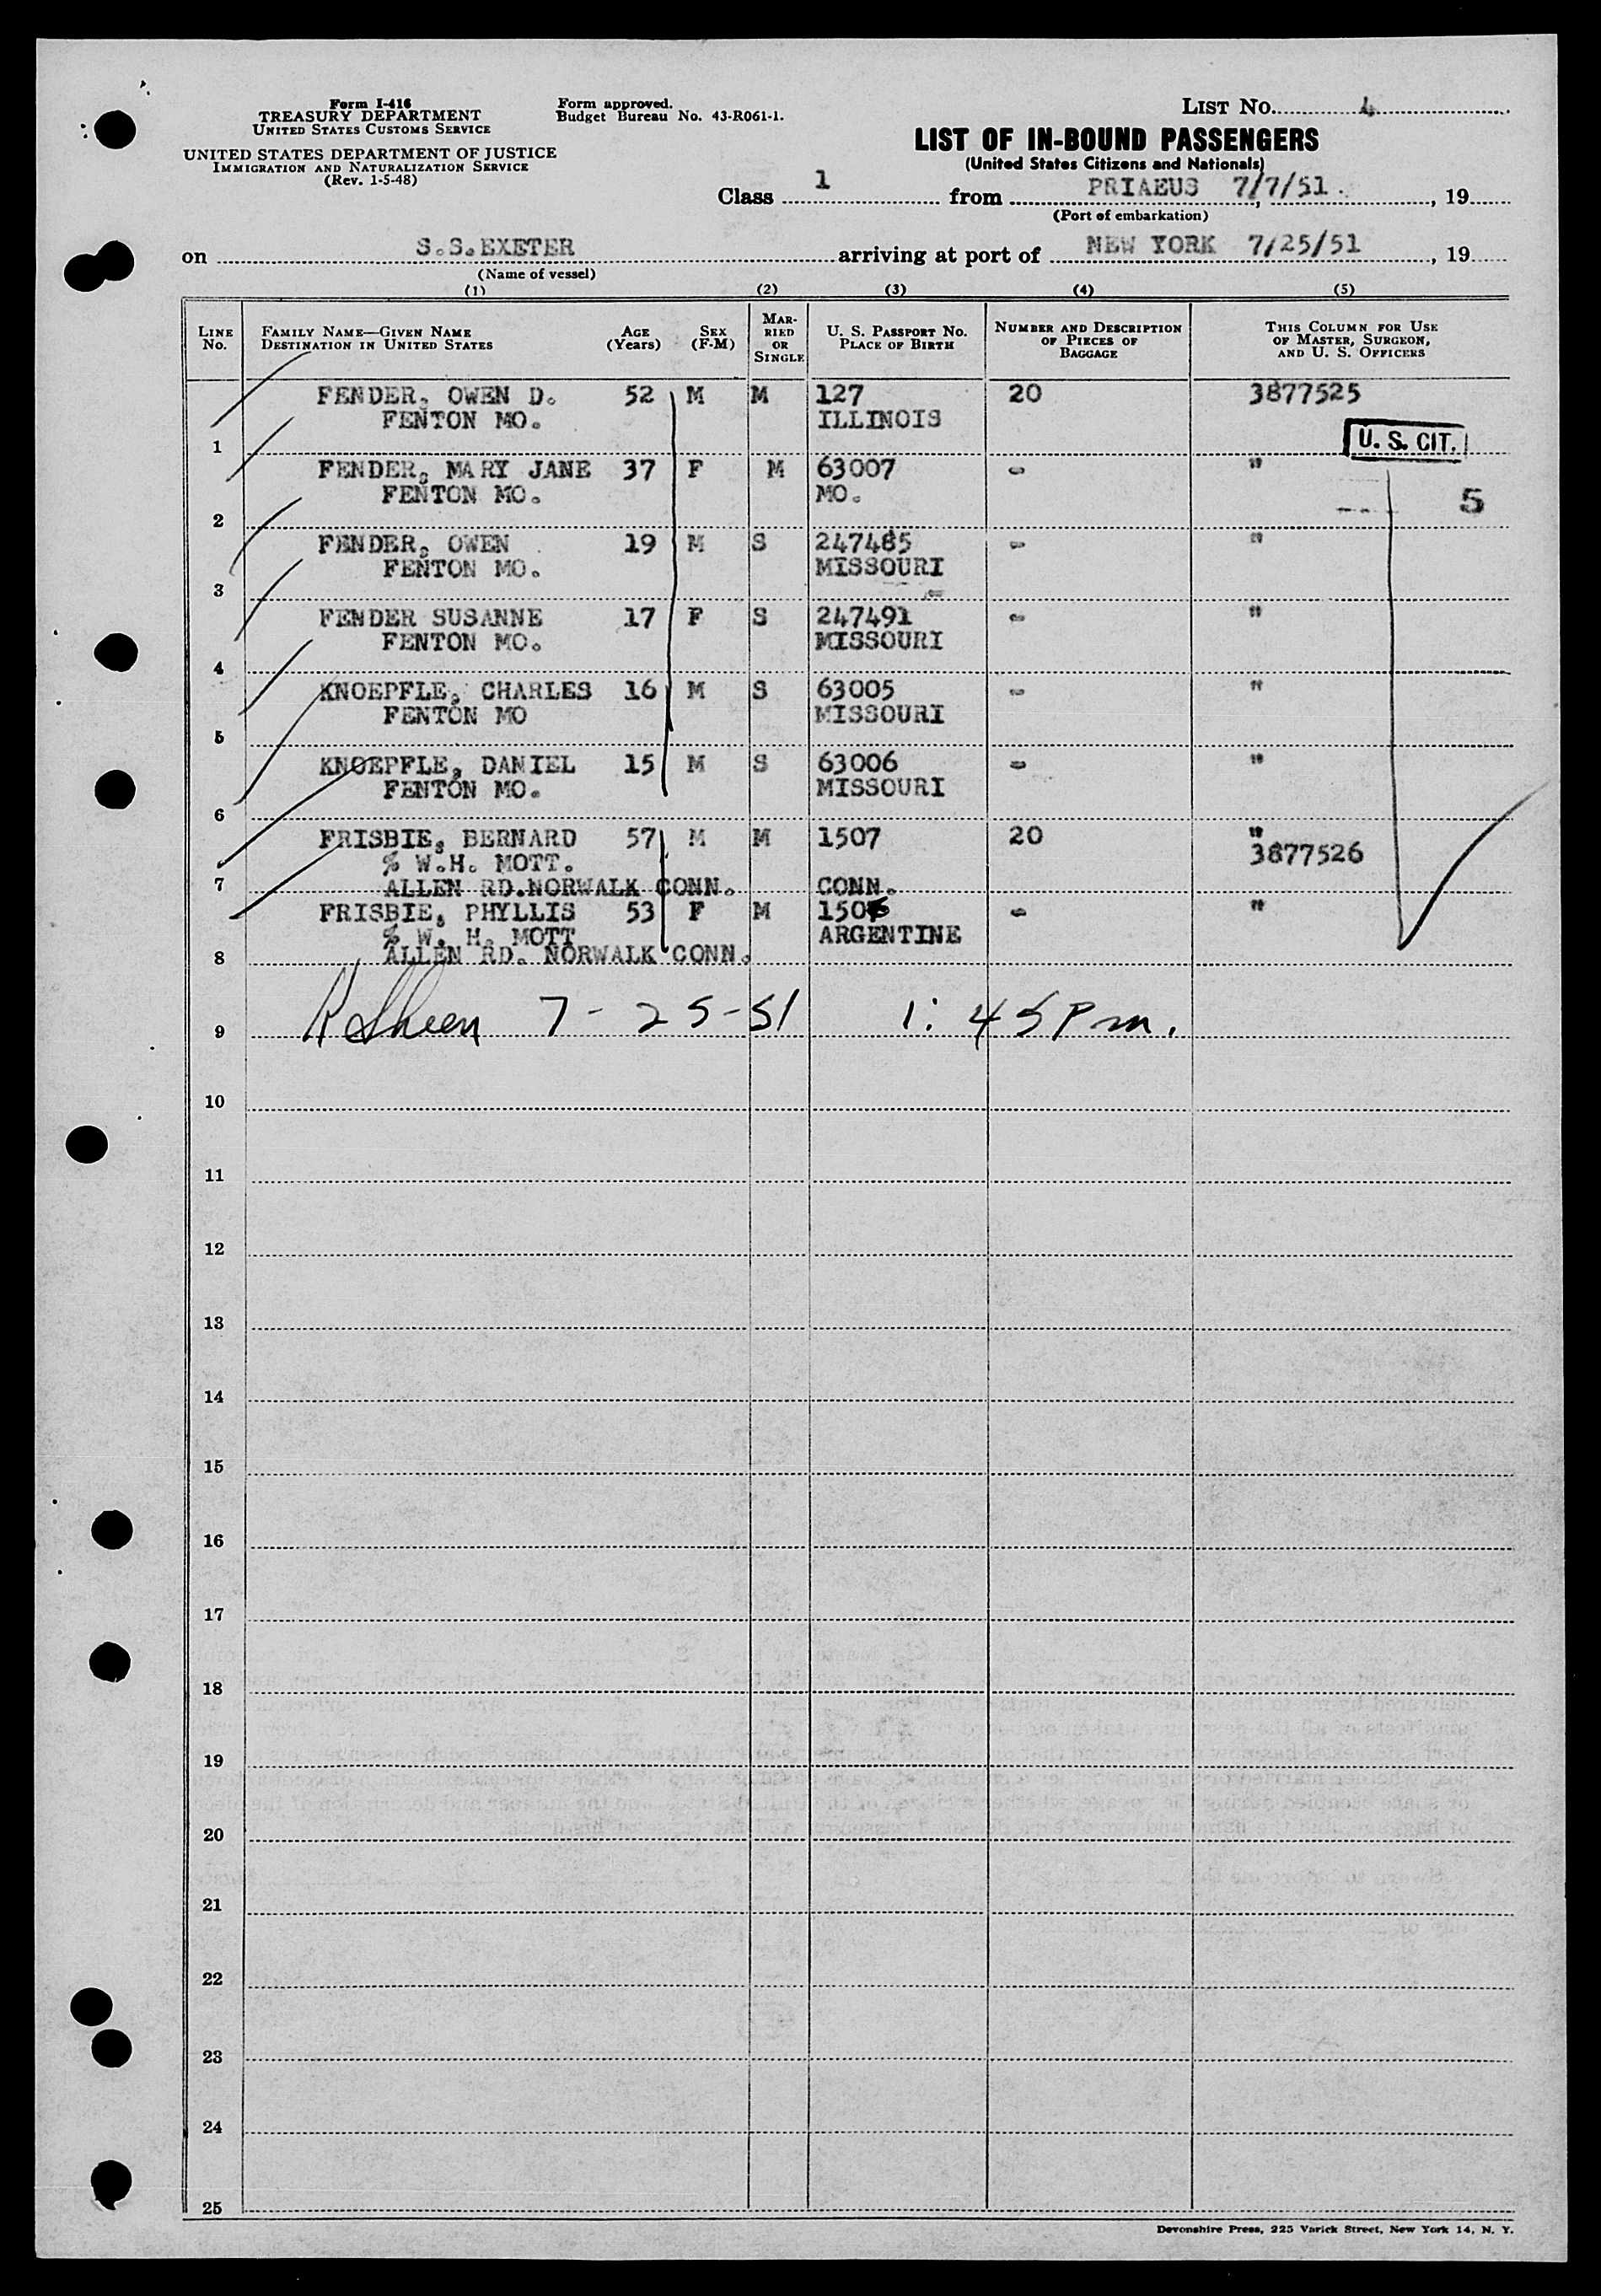 Form I-416
TREASURY DEPARTMENT
UNITED STATES CUSTOMS SERVICE
UNITED STATES DEPARTMENT OF JUSTICE
IMMIGRATION AND NATURALIZATION SERVICE
(Rev. 1-5-48)
Form approved.
Budget Bureau No. 43-R061-1.
LIST No. 4
LIST OF IN-BOUND PASSENGERS
(United States Citizens and Nationals)
Class 1 from PRIAEUS 7/7/51. , 19
(Port of embarkation)
on S.S.EXETER arriving at port of NEW YORK 7/25/51 , 19
(Name of vessel)
(1) (2) (3) (4) (5)
LINE No. FAMILY NAME—GIVEN NAME DESTINATION IN UNITED STATES AGE (Years) SEX (F-M) MARRIED OR SINGLE U. S. PASSPORT NO. PLACE OF BIRTH NUMBER AND DESCRIPTION OF PIECES OF BAGGAGE THIS COLUMN FOR USE OF MASTER, SURGEON, AND U. S. OFFICERS
FENDER, OWEN D. 52 M M 127 20 3877525
FENTON MO. ILLINOIS
1 U. S. CIT.
FENDER, MARY JANE 37 F M 63007 - "
FENTON MO. MO. 5
2
FENDER, OWEN 19 M S 247485 - "
FENTON MO. MISSOURI
3
FENDER SUSANNE 17 F S 247491 - "
FENTON MO. MISSOURI
4
KNOEPFLE, CHARLES 16 M S 63005 - "
FENTON MO MISSOURI
5
KNOEPFLE, DANIEL 15 M S 63006 - "
FENTON MO. MISSOURI
6
FRISBIE, BERNARD 57 M M 1507 20 "
% W.H. MOTT. 3877526
7 ALLEN RD.NORWALK CONN. CONN.
FRISBIE, PHYLLIS 53 F M - "
% W. H. MOTT ARGENTINE
8 ALLEN RD. NORWALK CONN.
9 7-25-51 1:45 Pm.
10
11
12
13
14
15
16
17
18
19
20
21
22
23
24
25
Devonshire Press, 225 Varick Street, New York 14, N. Y.